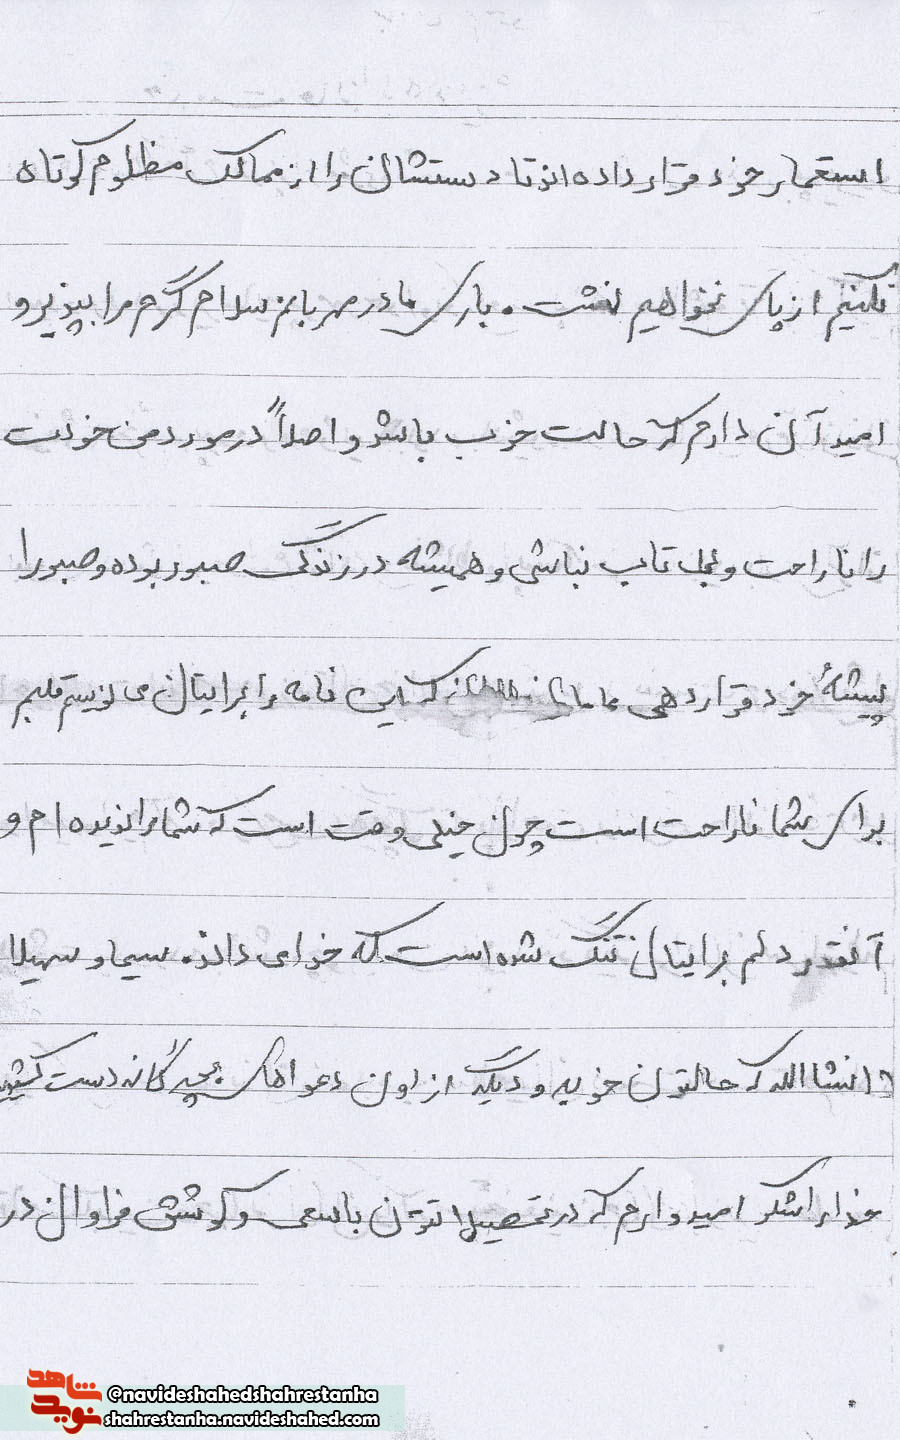 استعمار خود قرار داده اند تا دستشان را از ممالک مظلوم کوتاه
نکنیم از پای نخواهیم نشت . باری مادر مهربانم سلام گرم مرا بپذیر و
امید آن دارم که حالت خوب باشد و اصلاً در مورد من خودت
را ناراحت و بی تاب نباشی و همیشه در زندگی صبور بوده و صبور را
پیشهٔ خود قرار دهی مامان که این نامه را برایتان می نویسم قلبم
برای شما ناراحت است چون خیلی وقت است که شما را ندیده ام و
آنقدر دلم برایتان تنگ شده است که خدا می داند. سیما و سهیلا
انشا الله که حالتون خوبه و دیگه از اون دعواهای بچه گانه دست کشیدید
خدا را شکر امیدوارم که در تحصیلاتتون با سعی و کوشش فراوان در
شاهد
نوید
@navideshahedshahrestanha
shahrestanha.navideshahed.com